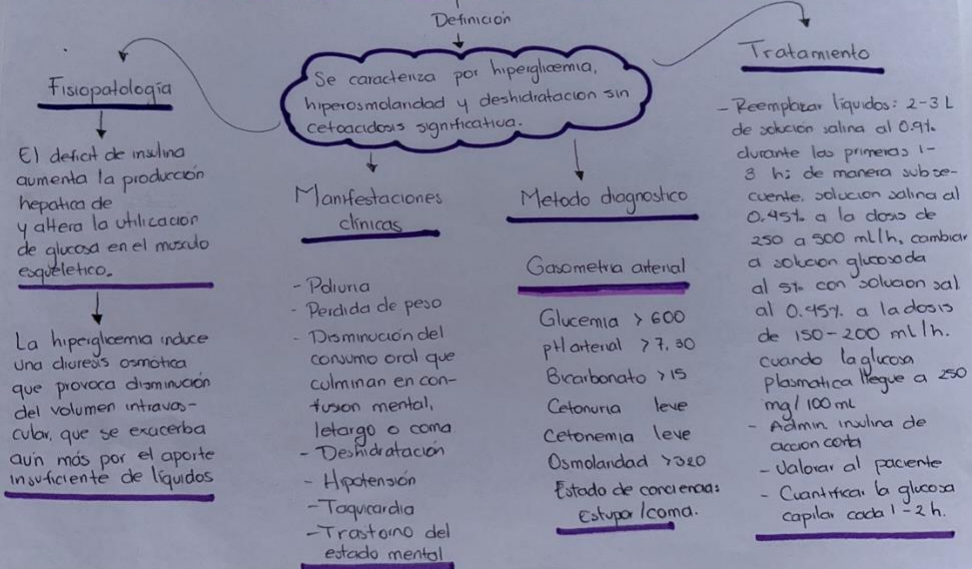 Definición
Se caracteriza por hiperglicemia,
hiperosmolaridad y deshidratacion sin
cetoacidosis significativa.
Fisiopatología
El deficit de insulina
aumenta la producción
hepatica de
y altera la utilización
de glucosa en el musculo
esquéletico.
La hiperglicemia induce
una diuresis osmótica
que provoca disminución
del volumen intravas-
cular, que se exacerba
aún más por el aporte
insuficiente de líquidos
Manifestaciones
clínicas
- Poliuria
- Perdida de peso
- Disminución del
consumo oral que
culminan en con-
fusion mental,
letargo o coma
- Deshidratación
- Hipotensión
- Taquicardia
- Trastorno del
estado mental
Metodo diagnostico
Gasometria arterial
Glucemia > 600
pH arterial > 7,30
Bicarbonato > 15
Cetonuria leve
Cetonemia leve
Osmolaridad > 320
Estado de conciencia:
Estupor/coma.
Tratamiento
- Reemplazar líquidos: 2-3 L
de solución salina al 0.9%
durante las primeras 1-
3 h; de manera subse-
cuente, solucion salina al
0.45% a la dosis de
250 a 500 ml/h, cambiar
a solucion glucosada
al 5% con solucion sal
al 0.45% a la dosis
de 150-200 ml/h.
cuando la glucosa
plasmatica llegue a 250
mg/100 ml
- Admin insulina de
accion corta
- Valorar al paciente
- Cuantificar la glucosa
capilar cada 1-2 h.